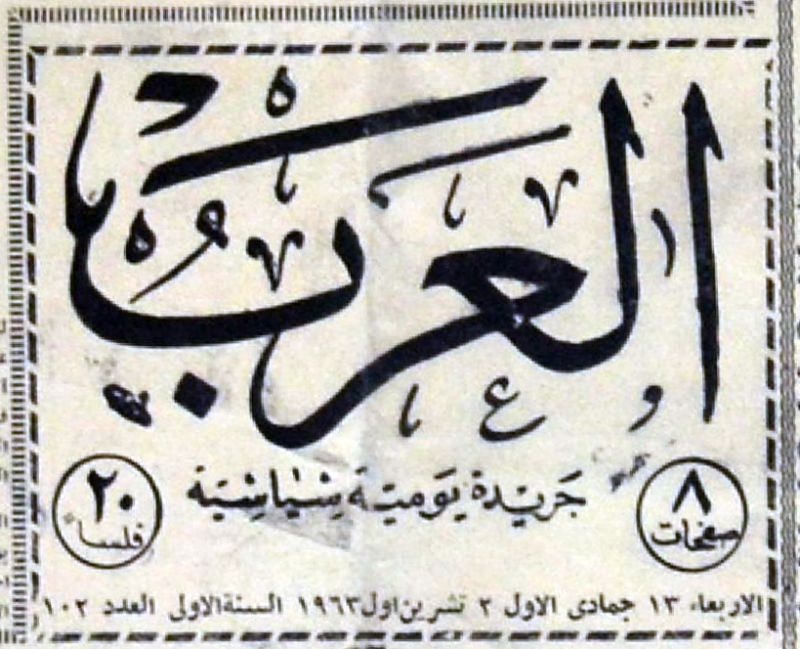 العرب
٨
صفحات
جريدة يومية سياسية
٢٠
فلسا
الاربعاء ١٣ جمادى الاول ٢ تشرين اول ١٩٦٣ السنة الاولى العدد ١٠٢